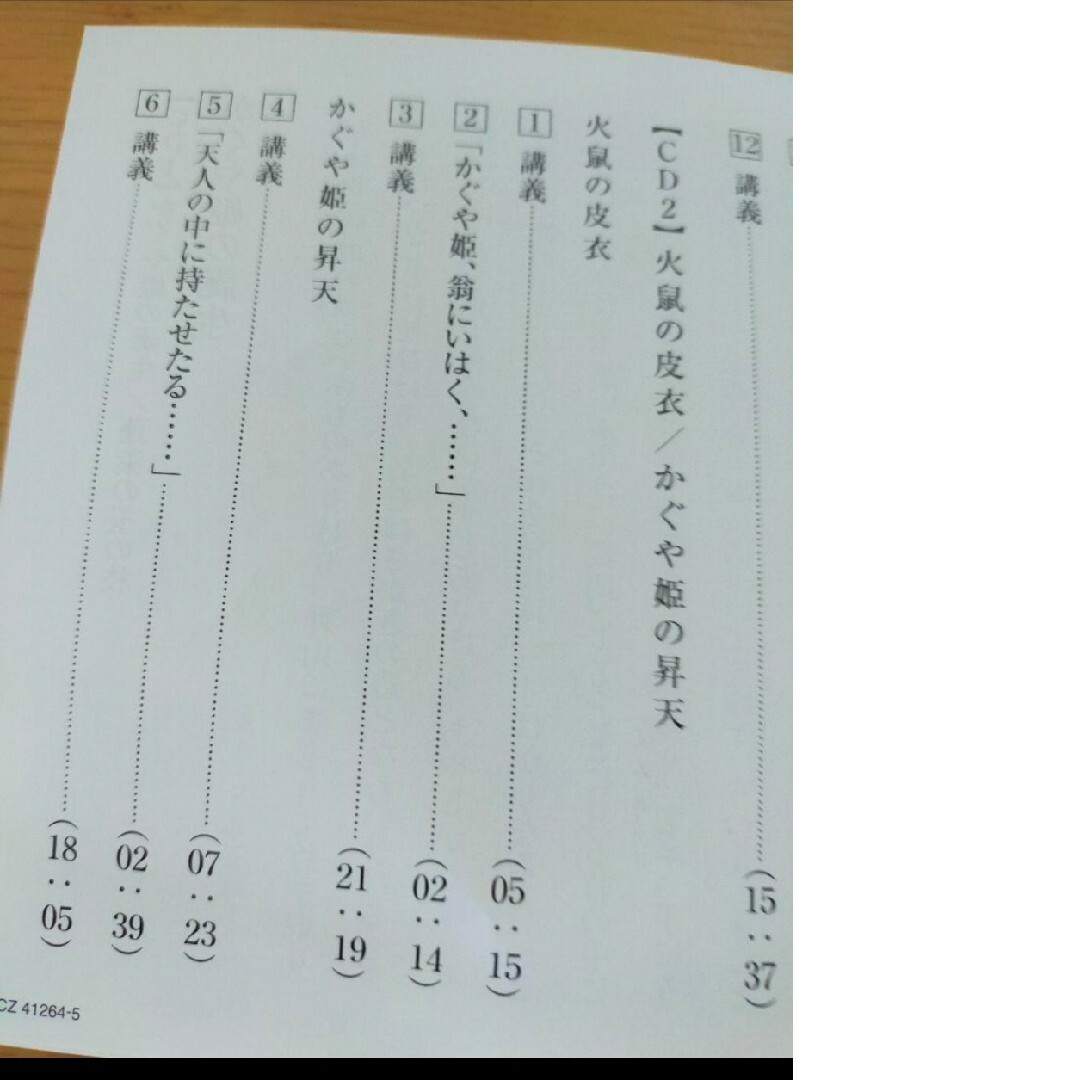 12 講義……(15：37)
【CD2】火鼠の皮衣／かぐや姫の昇天
火鼠の皮衣
1 講義……(05：15)
2 「かぐや姫、翁にいはく、……」……(02：14)
3 講義……(21：19)
かぐや姫の昇天
4 講義……(07：23)
5 「天人の中に持たせたる……」……(02：39)
6 講義……(18：05)
CZ 41264-5